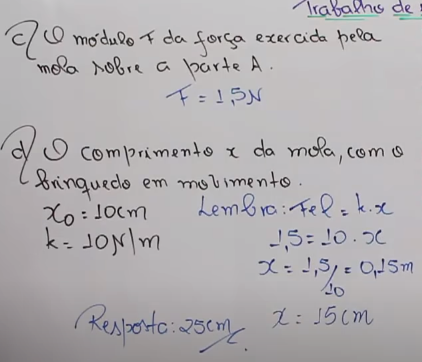 Trabalho de
c) O módulo F da força exercida pela
mola sobre a parte A.
F = 1,5N
d) O comprimento x da mola, com o
brinquedo em movimento.
x₀ = 10cm Lembra: Fel = k.x
k = 10N/m 1,5 = 10.x
x = 1,5/10 = 0,15m
Resposta: 25cm x = 15cm